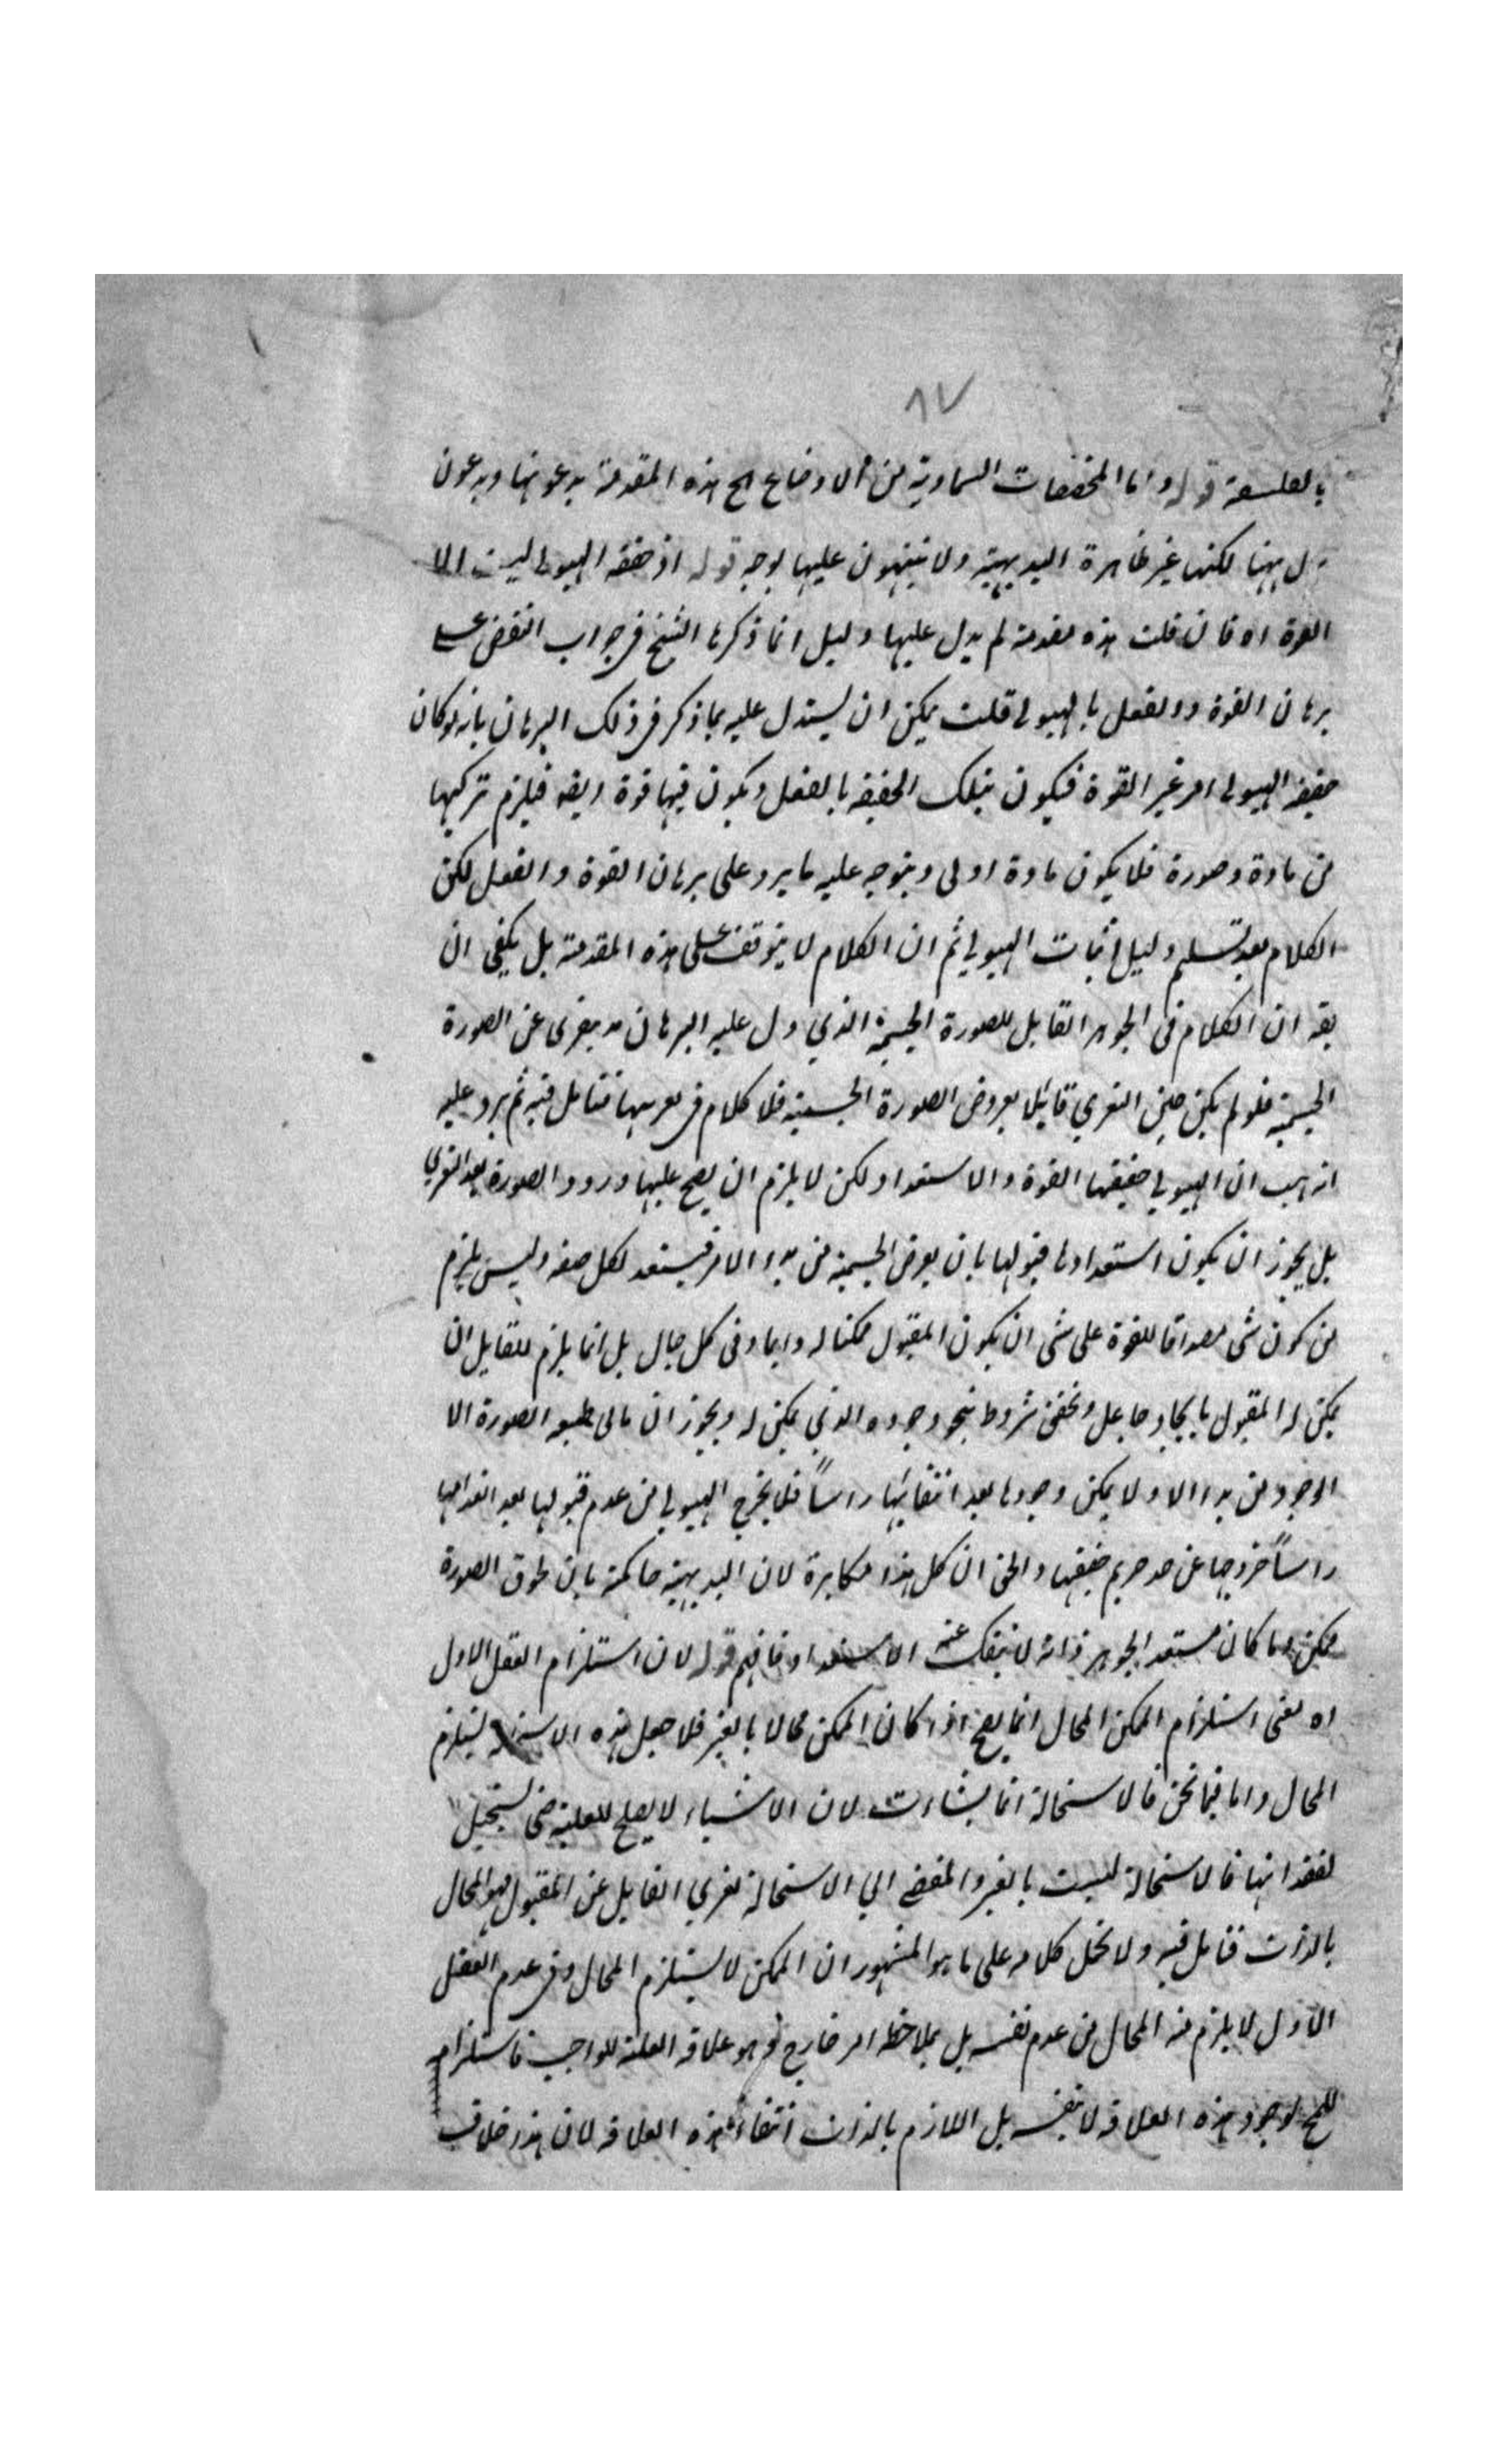 ٨٧
بالفلسفة قوله واما المخصصات السماوية من الاوضاع الخ هذه المقدمة يدعونها ويدعون
لكنها غير ظاهرة البديهية ولا ينبهون عليها بوجه قوله اذ حقيقة الهيولى ليست الا
القوة اه فان قلت هذه مقدمة لم يدل عليها دليل انما ذكرها الشيخ في جواب النقض على
برهان القوة والفعل بالهيولى قلت يمكن ان يستدل عليه بما ذكر في ذلك البرهان بانه لو كان
حقيقة الهيولى امر غير القوة فيكون بتلك الحقيقة بالفعل ويكون فيها قوة ايضه فيلزم تركيبها
من مادة وصورة فلا يكون مادة اولى ويتوجه عليه ما يرد على برهان القوة والفعل لكن
الكلام بعد تسليم دليل اثبات الهيولى ثم ان الكلام لا يتوقف على هذه المقدمة بل يكفي ان
يقه ان الكلام في الجوهر القابل للصورة الجسمية الذي دل عليه البرهان هو معرى عن الصورة
الجسمية فلو لم يكن حين التعري قابلا لعروض الصورة الجسمية فلا كلام في تعريها فتامل فيه ثم يرد عليه
انه هب ان الهيولى حقيقتها القوة والاستعداد لكن لا يلزم ان يصح عليها ورود الصورة بعد التعري
بل يجوز ان يكون استعدادها قبولها بان يعرض الجسمية من بدء الامر فيستعد لكل صفة وليس يلزم
من كون شى مصداقا للقوة على شى ان يكون المقبول ممكنا له دايما وفى كل حال بل انما يلزم للقابل ان
يمكن له المقبول بايجاد جاعل وتحقق شروط بنحو وجوده الذي يمكن له ويجوز ان الصورة الا
الوجود من بدء الا ولا يمكن وجودها بعد انتفائها راساً فلا يخرج الهيولى من عدم قبولها بعد انعدامها
راساً خروجا عن حد حريم حقيقتها والحق ان كل هذا مكابرة لان البديهية حاكمة بان طوق الصورة
ممكن وما كان مستعد الجوهر ذاته لا ينفك عنه الاستعداد فافهم قوله لان استلزام العقل الاول
اه يعنى استلزام الممكن المحال انما يصح اذا كان الممكن محالا بالغير فلا جعل هذه يستلزم
المحال واما فيما نحن فالاستحالة انما لان الاشياء لا يصلح للعلية حتى يستحيل
لفقدانها فالاستحالة ليست بالغير والمفضي الي الاستحالة تعري القابل عن المقبول فهو المحال
بالذات فتامل فيه ولا تحمل كلامه على ما هو المشهور ان الممكن لا يستلزم المحال وفى عدم العقل
الاول لا يلزم منه المحال من عدم نفسه بل بملاحظة امر خارج هو علاقة العلية للواجب فاستلزامه
للمح لوجود هذه العلاقة لا بنفسه بل اللازم بالذات انتفاء هذه العلاقة لان هذا خلاف